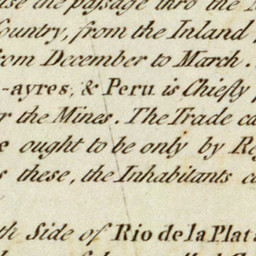 the passage thro the
Country, from the Inland
from December to March.
-ayres, & Peru is Chiefly
the Mines. The Trade
ought to be only by
these, the Inhabitants
Side of Rio de la Plat